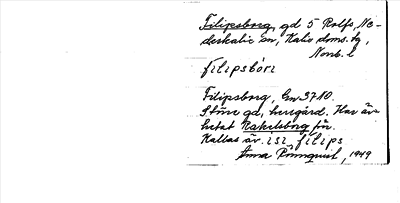 Filipsborg, gd 5 Rolfs, Ne-
derkalix sn, Kalix doms. tg,
Norrb. l
filipsbårj
Filipsborg, Gw 3710.
Större gd, herrgård. Har äv.
hetat Rakelsborg förr.
Kallas äv. isi. filips
Anna Rönnqvist, 1949